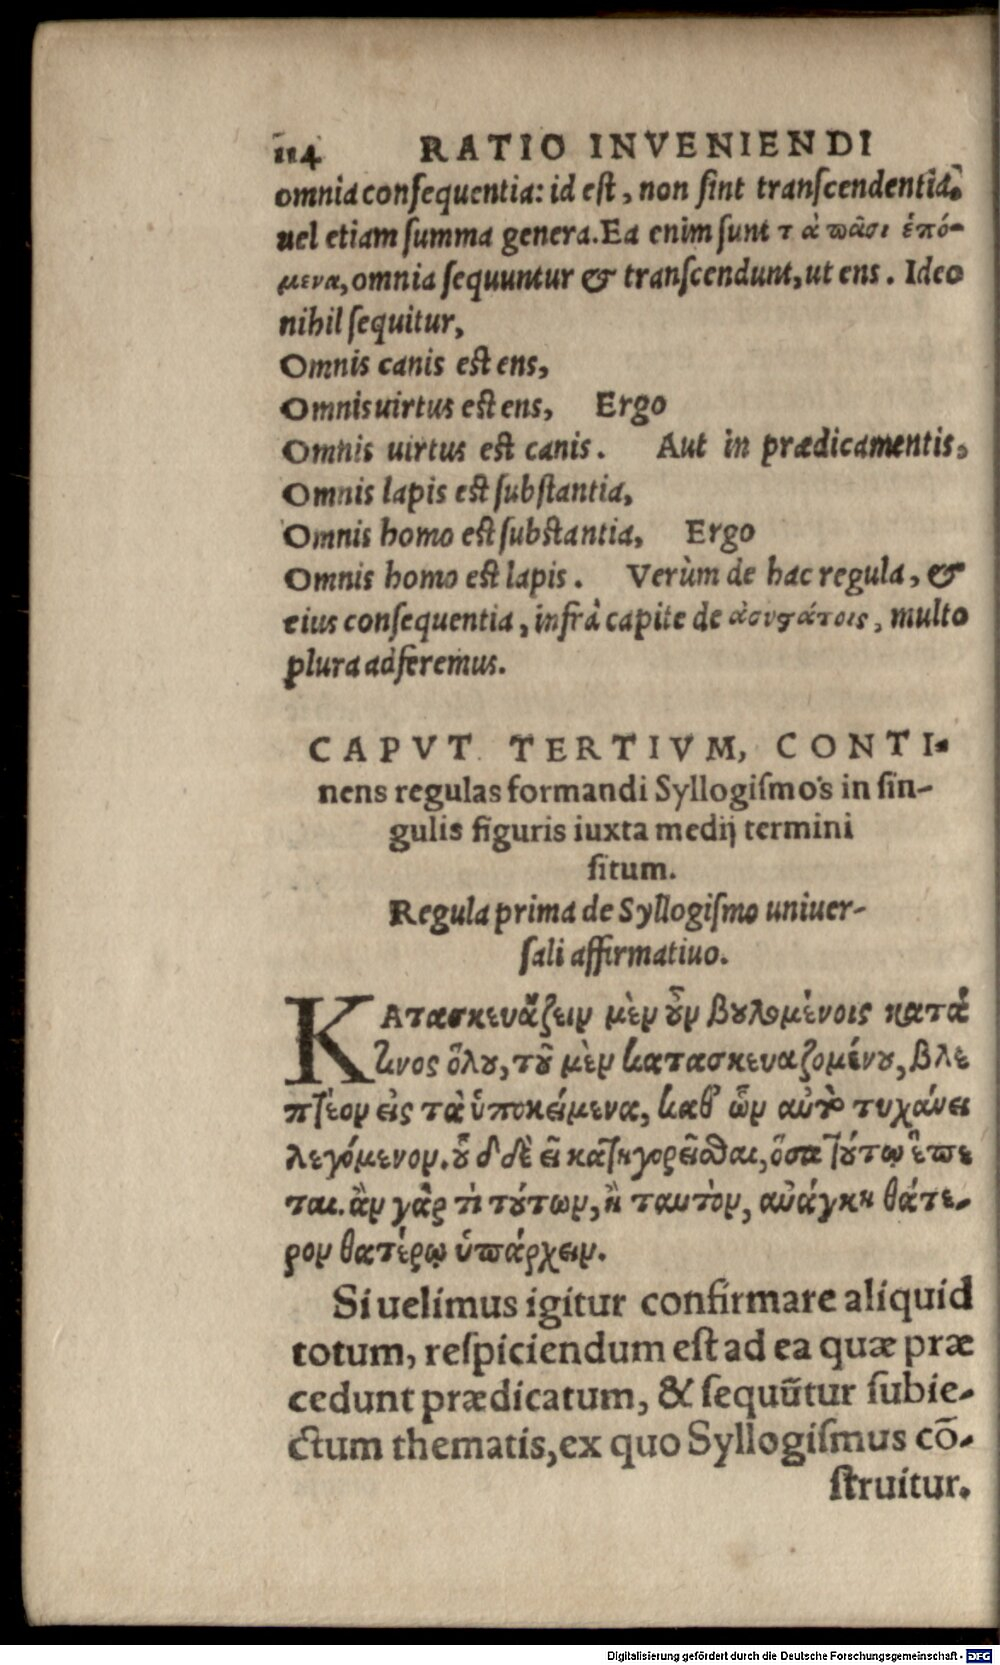 114 RATIO INVENIENDI
omnia consequentia: id est, non sint transcendentia.
uel etiam summa genera. Ea enim sunt τὰ πᾶσι ἑπό-
μενα, omnia sequuntur & transcendunt, ut ens. Ideo
nihil sequitur,
Omnis canis est ens,
Omnis uirtus est ens, Ergo
Omnis uirtus est canis. Aut in prædicamentis,
Omnis lapis est substantia,
Omnis homo est substantia, Ergo
Omnis homo est lapis. Verùm de hac regula, &
eius consequentia, infrà capite de ἀσυστάτοις, multo
plura adferemus.
CAPVT TERTIVM, CONTI-
nens regulas formandi Syllogismos in sin-
gulis figuris iuxta medij termini
situm.
Regula prima de Syllogismo uniuer-
sali affirmatiuo.
ΚΑτασκευάζειν μὲν οὖν βουλομένοις κατά
τινος ὅλου, τοῦ μὲν κατασκευαζομένου, βλε
πτέον εἰς τὰ ὑποκείμενα, καθ' ὧν αὐτὸ τυχάνει
λεγόμενον. οὗ δὲ δεῖ κατηγορεῖσθαι, ὅσα τούτῳ ἕπε
ται. ἂν γάρ τι τούτων, ᾖ ταυτὸν, ἀνάγκη θάτε-
ρον θατέρῳ ὑπάρχειν.
Si uelimus igitur confirmare aliquid
totum, respiciendum est ad ea quæ præ
cedunt prædicatum, & sequũtur subie-
ctum thematis, ex quo Syllogismus cõ-
struitur.
Digitalisierung gefördert durch die Deutsche Forschungsgemeinschaft - DFG